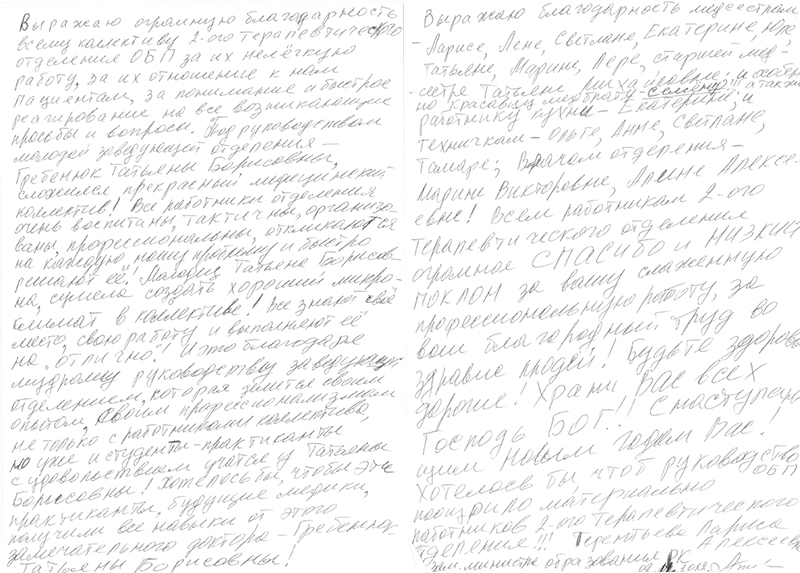 Выражаю огромную благодарность
всему коллективу 2-ого терапевтического
отделения ОБП за их нелёгкую
работу, за их отношение к нам
пациентам, за понимание и быстрое
реагирование на все возникающие
просьбы и вопросы. Под руководством
молодой заведующей отделения –
Гребенюк Татьяны Борисовны,
сложился прекрасный медицинский
коллектив! Все работники отделения
очень воспитаны, тактичны, организо-
ваны, профессиональны, откликаются
на каждую нашу проблему и быстро
решают её! Молодец Татьяна Борисов-
на, сумела создать хороший микро-
климат в коллективе! Все знают своё
место, свою работу и выполняют её
на „отлично"! И это благодаря
мудрому руководству заведующей
отделением, которая делится своим
опытом, своим профессионализмом
не только с работниками коллектива,
но уже и студенты-практиканты
с удовольствием учатся у Татьяны
Борисовны! Хотелось бы, чтобы эти
практиканты, будущие медики,
получили все навыки от этого
замечательного доктора – Гребенюк
Татьяны Борисовны!
Выражаю благодарность медсёстрам
– Ларисе, Лене, Светлане, Екатерине, Юле
Татьяне, Марине, Лере, старшей мед-
сестре Татьяне Михайловне; и особен
но красавцу медбрату – Семёну!!! а также
работнику кухни – Екатерине; и
техничкам – Ольге, Анне, Светлане,
Тамаре; Врачам отделения –
Марине Викторовне, Алине Алексе-
евне! Всем работникам 2-ого
терапевтического отделения
огромное СПАСИБО и НИЗКИЙ
ПОКЛОН за вашу слаженную
профессиональную работу, за
ваш благородный труд во
здравие людей! Будьте здоровы
дорогие! Храни Вас всех
Господь БОГ!! С наступаю
щим Новым годом Вас!
Хотелось бы, чтоб руководство
ОБП
поощрило материально
работников 2-ого терапевтического
отделения!!! Терентьева Лариса
Алексеевна
зам. министра образования РК